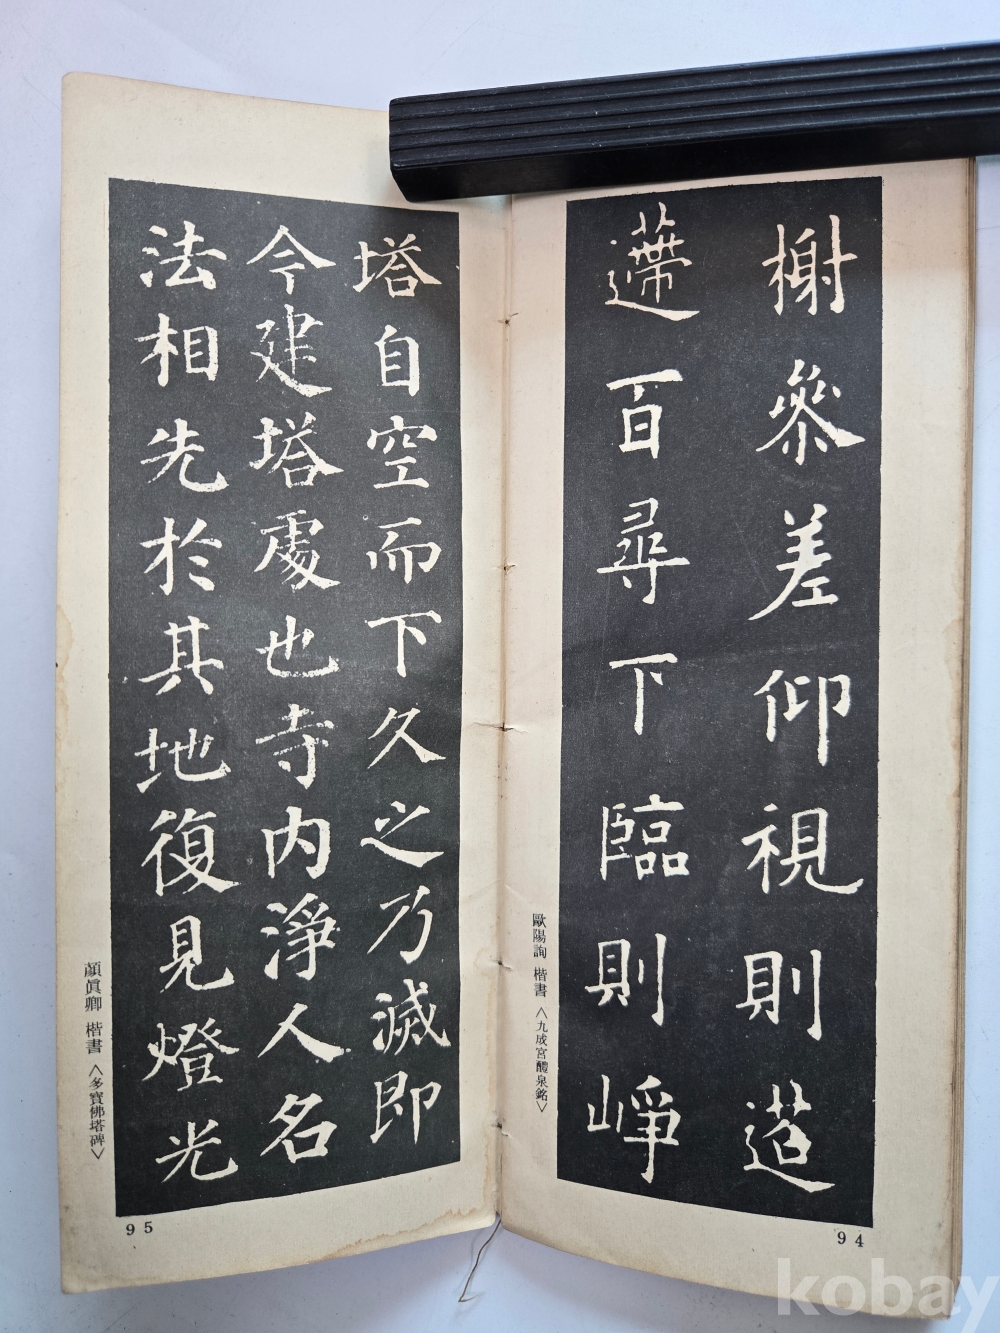 榭參差仰視則迢
遰百尋下臨則崢
歐陽詢 楷書 〈九成宮醴泉銘〉
94
塔自空而下久之乃滅即
今建塔處也寺內淨人名
法相先於其地復見燈光
顏眞卿 楷書 〈多寶佛塔碑〉
95
kobay